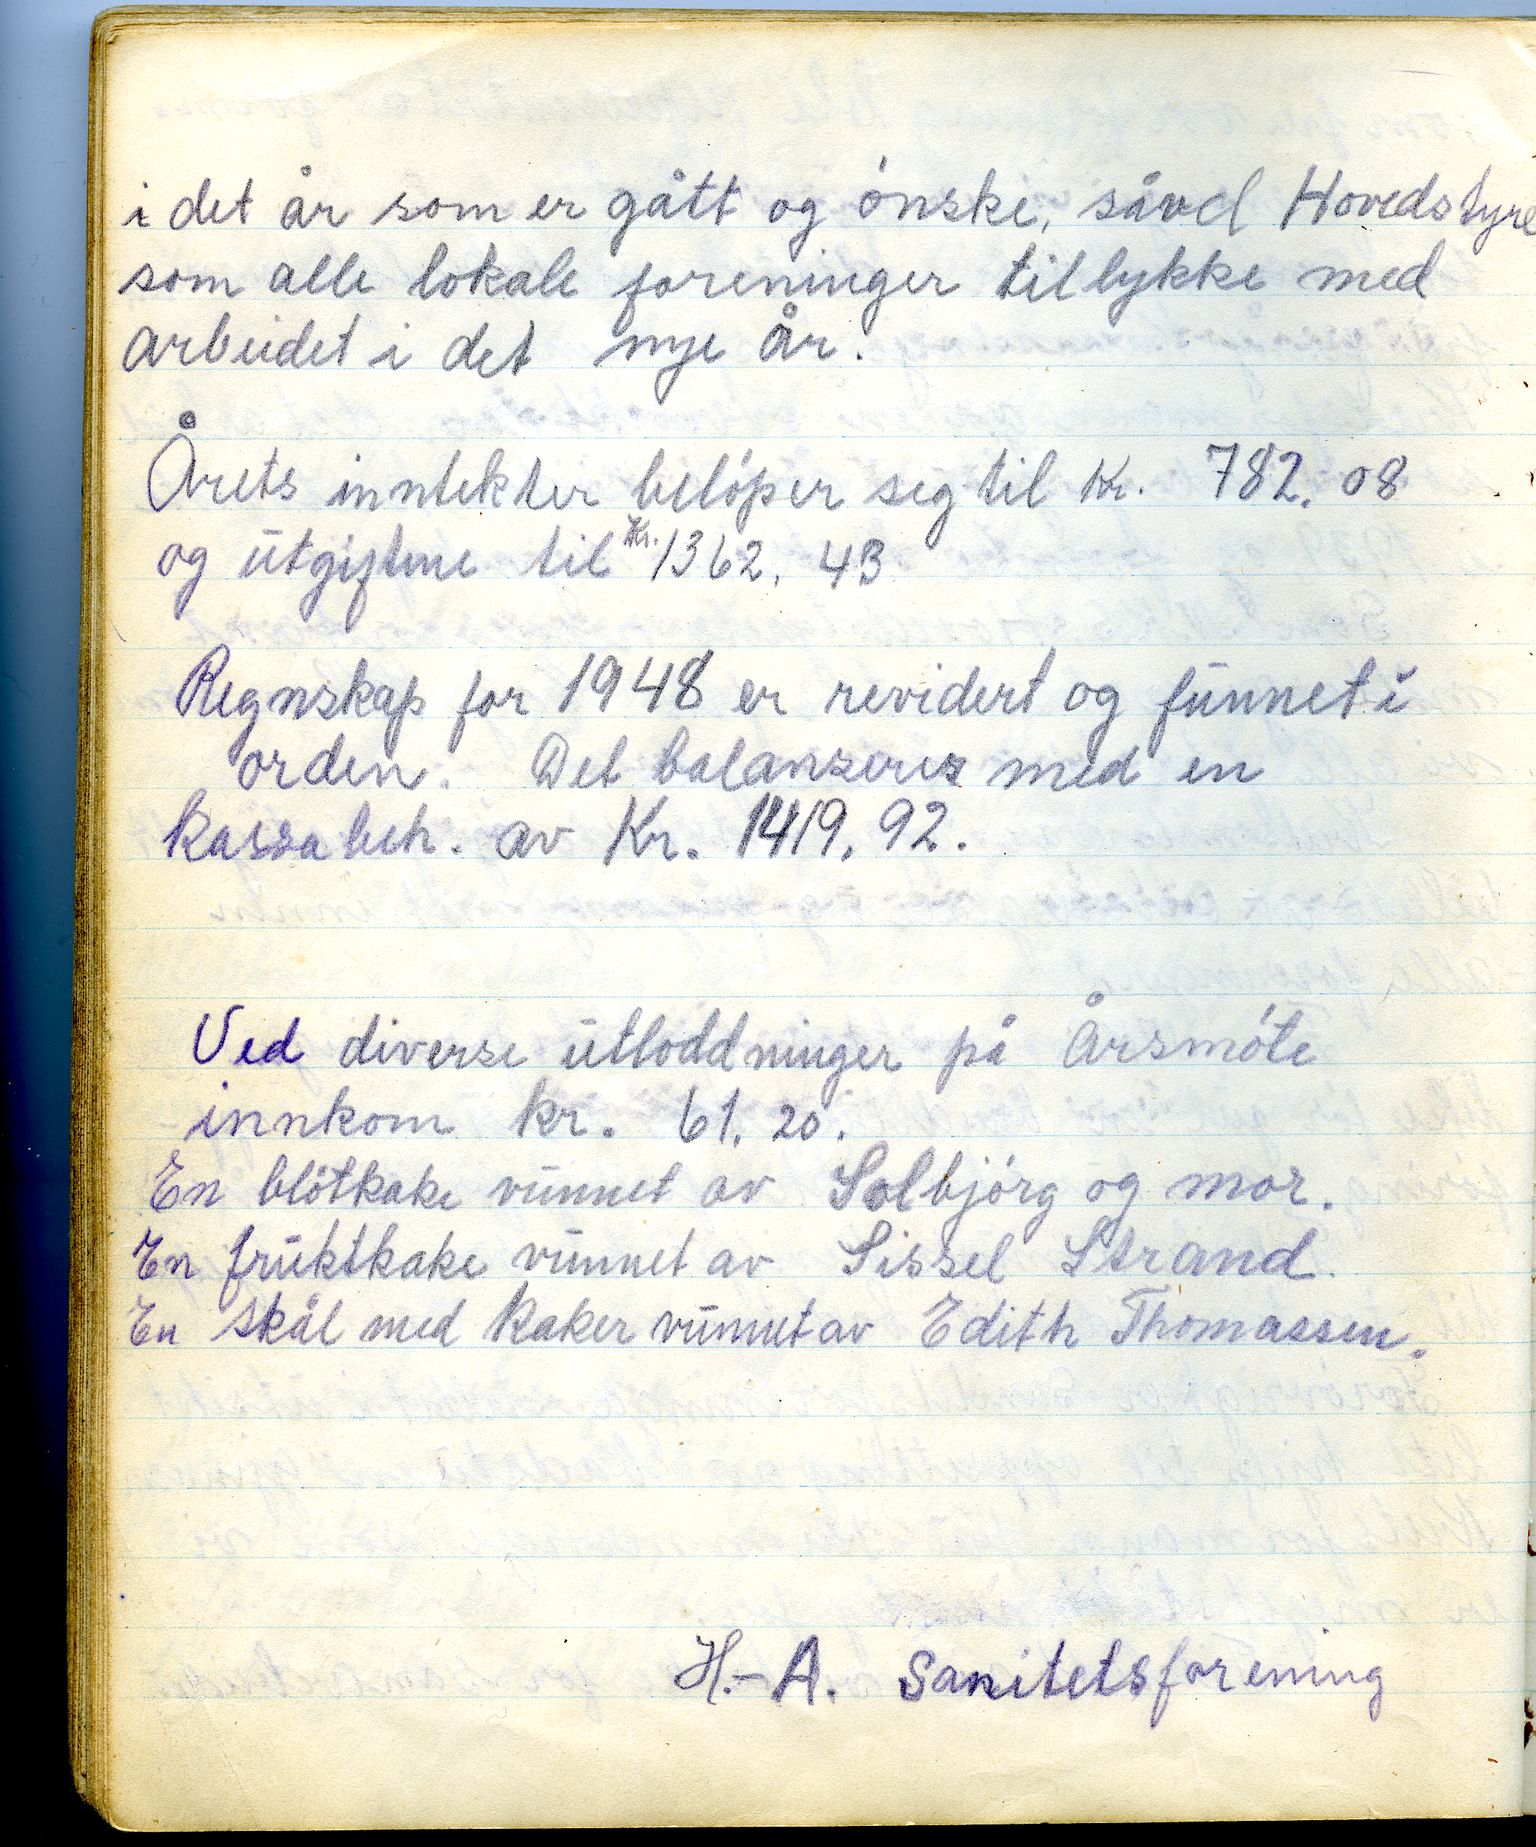 i det år som er gått og ønske, såvel Hovedstyre
som alle lokale foreninger tillykke med
arbeidet i det nye år.
Årets inntekter beløper seg til Kr. 782.08
og utgiftene til Kr. 1362.43
Regnskap for 1948 er revidert og funnet i
orden. Det balanseres med en
kassabeh. av Kr. 1419.92.
Ved diverse utloddninger på Årsmøte
innkom kr. 61.20.
En bløtkake vunnet av Solbjørg og mor.
En fruktkake vunnet av Sissel Strand.
En skål med kaker vunnet av Edith Thomassen.
H.-A. Sanitetsforening